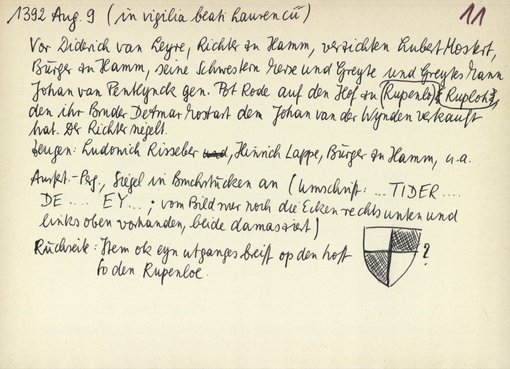 1392 Aug. 9 (in vigilia beati Laurencii) 11
Vor Diderich van Leyre, Richter zu Hamm, verzichten Lubert Mostert,
Bürger zu Hamm, seine Schwestern Nese und Greyte und Greytes Mann
Johan van Pentlynck gen. Pot Rode auf den Hof zu (Rupenlo) (Ruploh),
den ihr Bruder Detmar Mostart dem Johan van der Wynden verkauft
hat. Der Richter siegelt.
Zeugen: Ludowich Risseber und, Hinrich Lappe, Bürger zu Hamm, u.a.
Ausf.-Pg., Siegel in Bruchstücken an (Umschrift: ... TIDER ....
DE .... EY...; vom Bild nur noch die Ecken rechts unten und
links oben vorhanden, beide damasziert)
Rückseite: Item ok eyn utganges breiff op den hoff ?
to den Rupenloe.